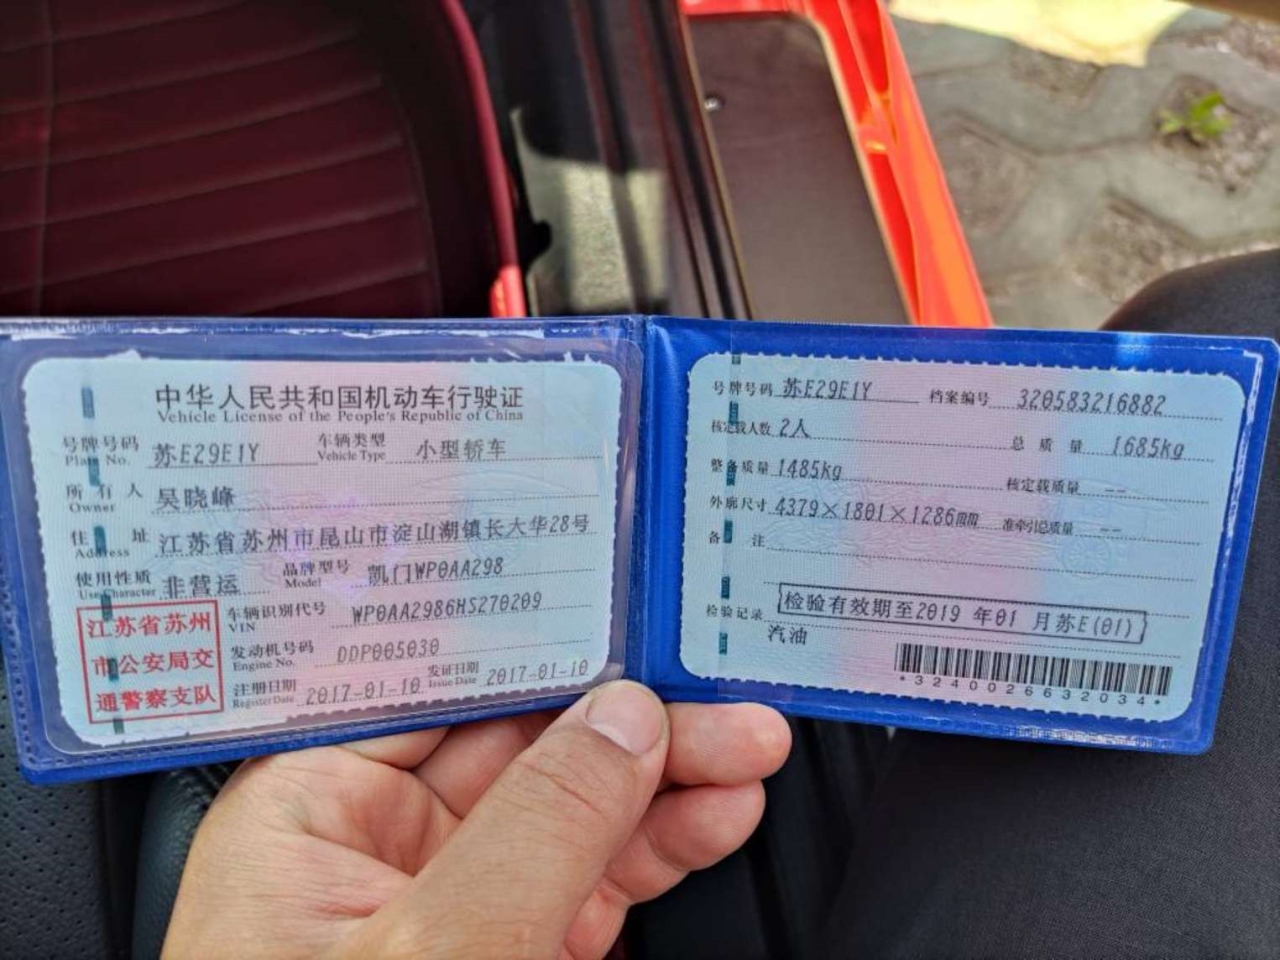 中华人民共和国机动车行驶证
Vehicle License of the People's Republic of China
号牌号码 苏E29E1Y 车辆类型 小型轿车
Plate No. Vehicle Type
所有人 吴晓峰
Owner
住址 江苏省苏州市昆山市淀山湖镇长大华28号
Address
使用性质 非营运 品牌型号 凯门WP0AA298
Use Character Model
江苏省苏州
市公安局交
通警察支队
车辆识别代号 WP0AA2986HS270209
VIN
发动机号码 DDP005030
Engine No.
注册日期 2017-01-10 发证日期 2017-01-10
Register Date Issue Date
号牌号码 苏E29E1Y 档案编号 320583216882
核定载人数 2人 总质量 1685kg
整备质量 1485kg 核定载质量 --
外廓尺寸 4379×1801×1286mm 准牵引总质量 --
备注
检验记录 检验有效期至2019 年01 月苏E(01)
汽油
*3240026632034*